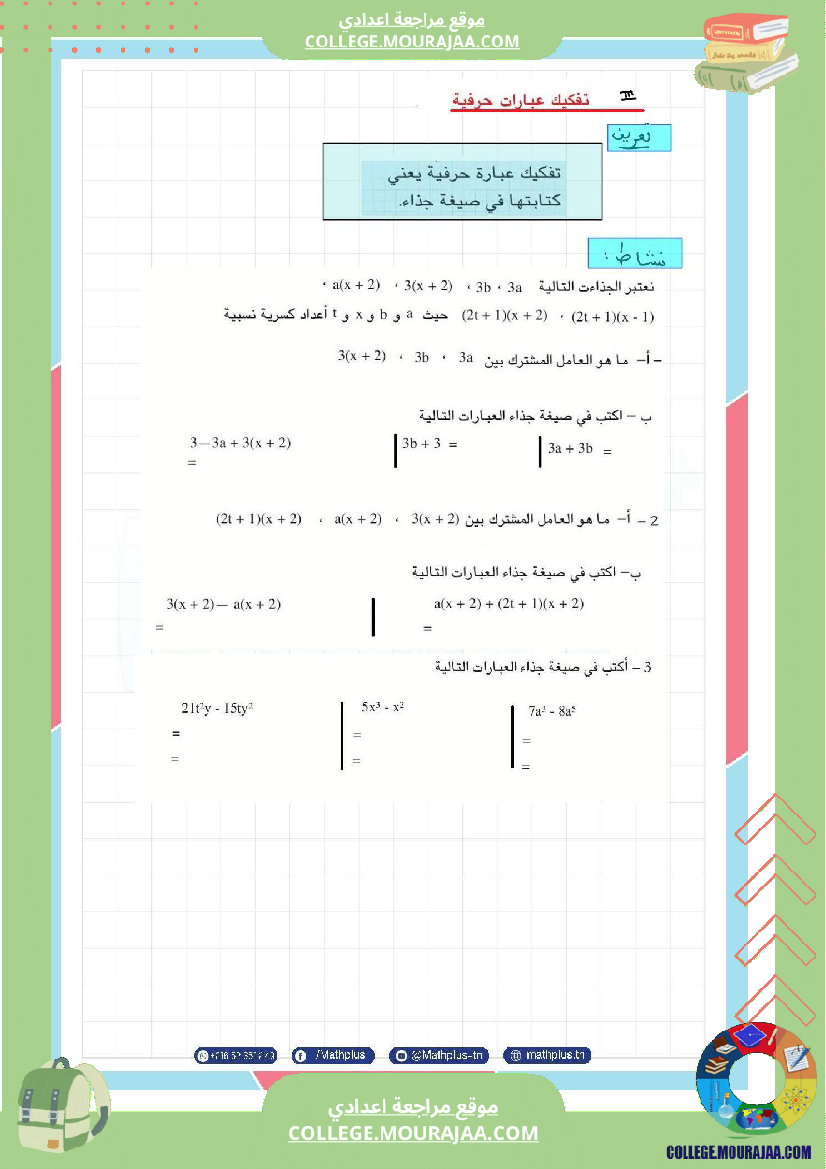 موقع مراجعة اعدادي
COLLEGE.MOURAJAA.COM
III تفكيك عبارات حرفية
تعريف
تفكيك عبارة حرفية يعني
كتابتها في صيغة جذاء.
نشاط :
نعتبر الجذاءت التالية 3a ، 3b ، 3(x + 2) ، a(x + 2) ،
(2t + 1)(x - 1) ، (2t + 1)(x + 2) حيث a و b و x و t أعداد كسرية نسبية
– أ– ما هو العامل المشترك بين 3a ، 3b ، 3(x + 2)
ب – اكتب في صيغة جذاء العبارات التالية
3a + 3b =
3b + 3 =
3—3a + 3(x + 2)
=
2 – أ– ما هو العامل المشترك بين 3(x + 2) ، a(x + 2) ، (2t + 1)(x + 2)
ب– اكتب في صيغة جذاء العبارات التالية
a(x + 2) + (2t + 1)(x + 2)
=
3(x + 2) — a(x + 2)
=
3 – أكتب في صيغة جذاء العبارات التالية
7a² - 8a⁵
=
=
5x³ - x²
=
=
21t²y - 15ty²
=
=
/Mathplus
@Mathplus-tn
mathplus.tn
موقع مراجعة اعدادي
COLLEGE.MOURAJAA.COM
COLLEGE.MOURAJAA.COM